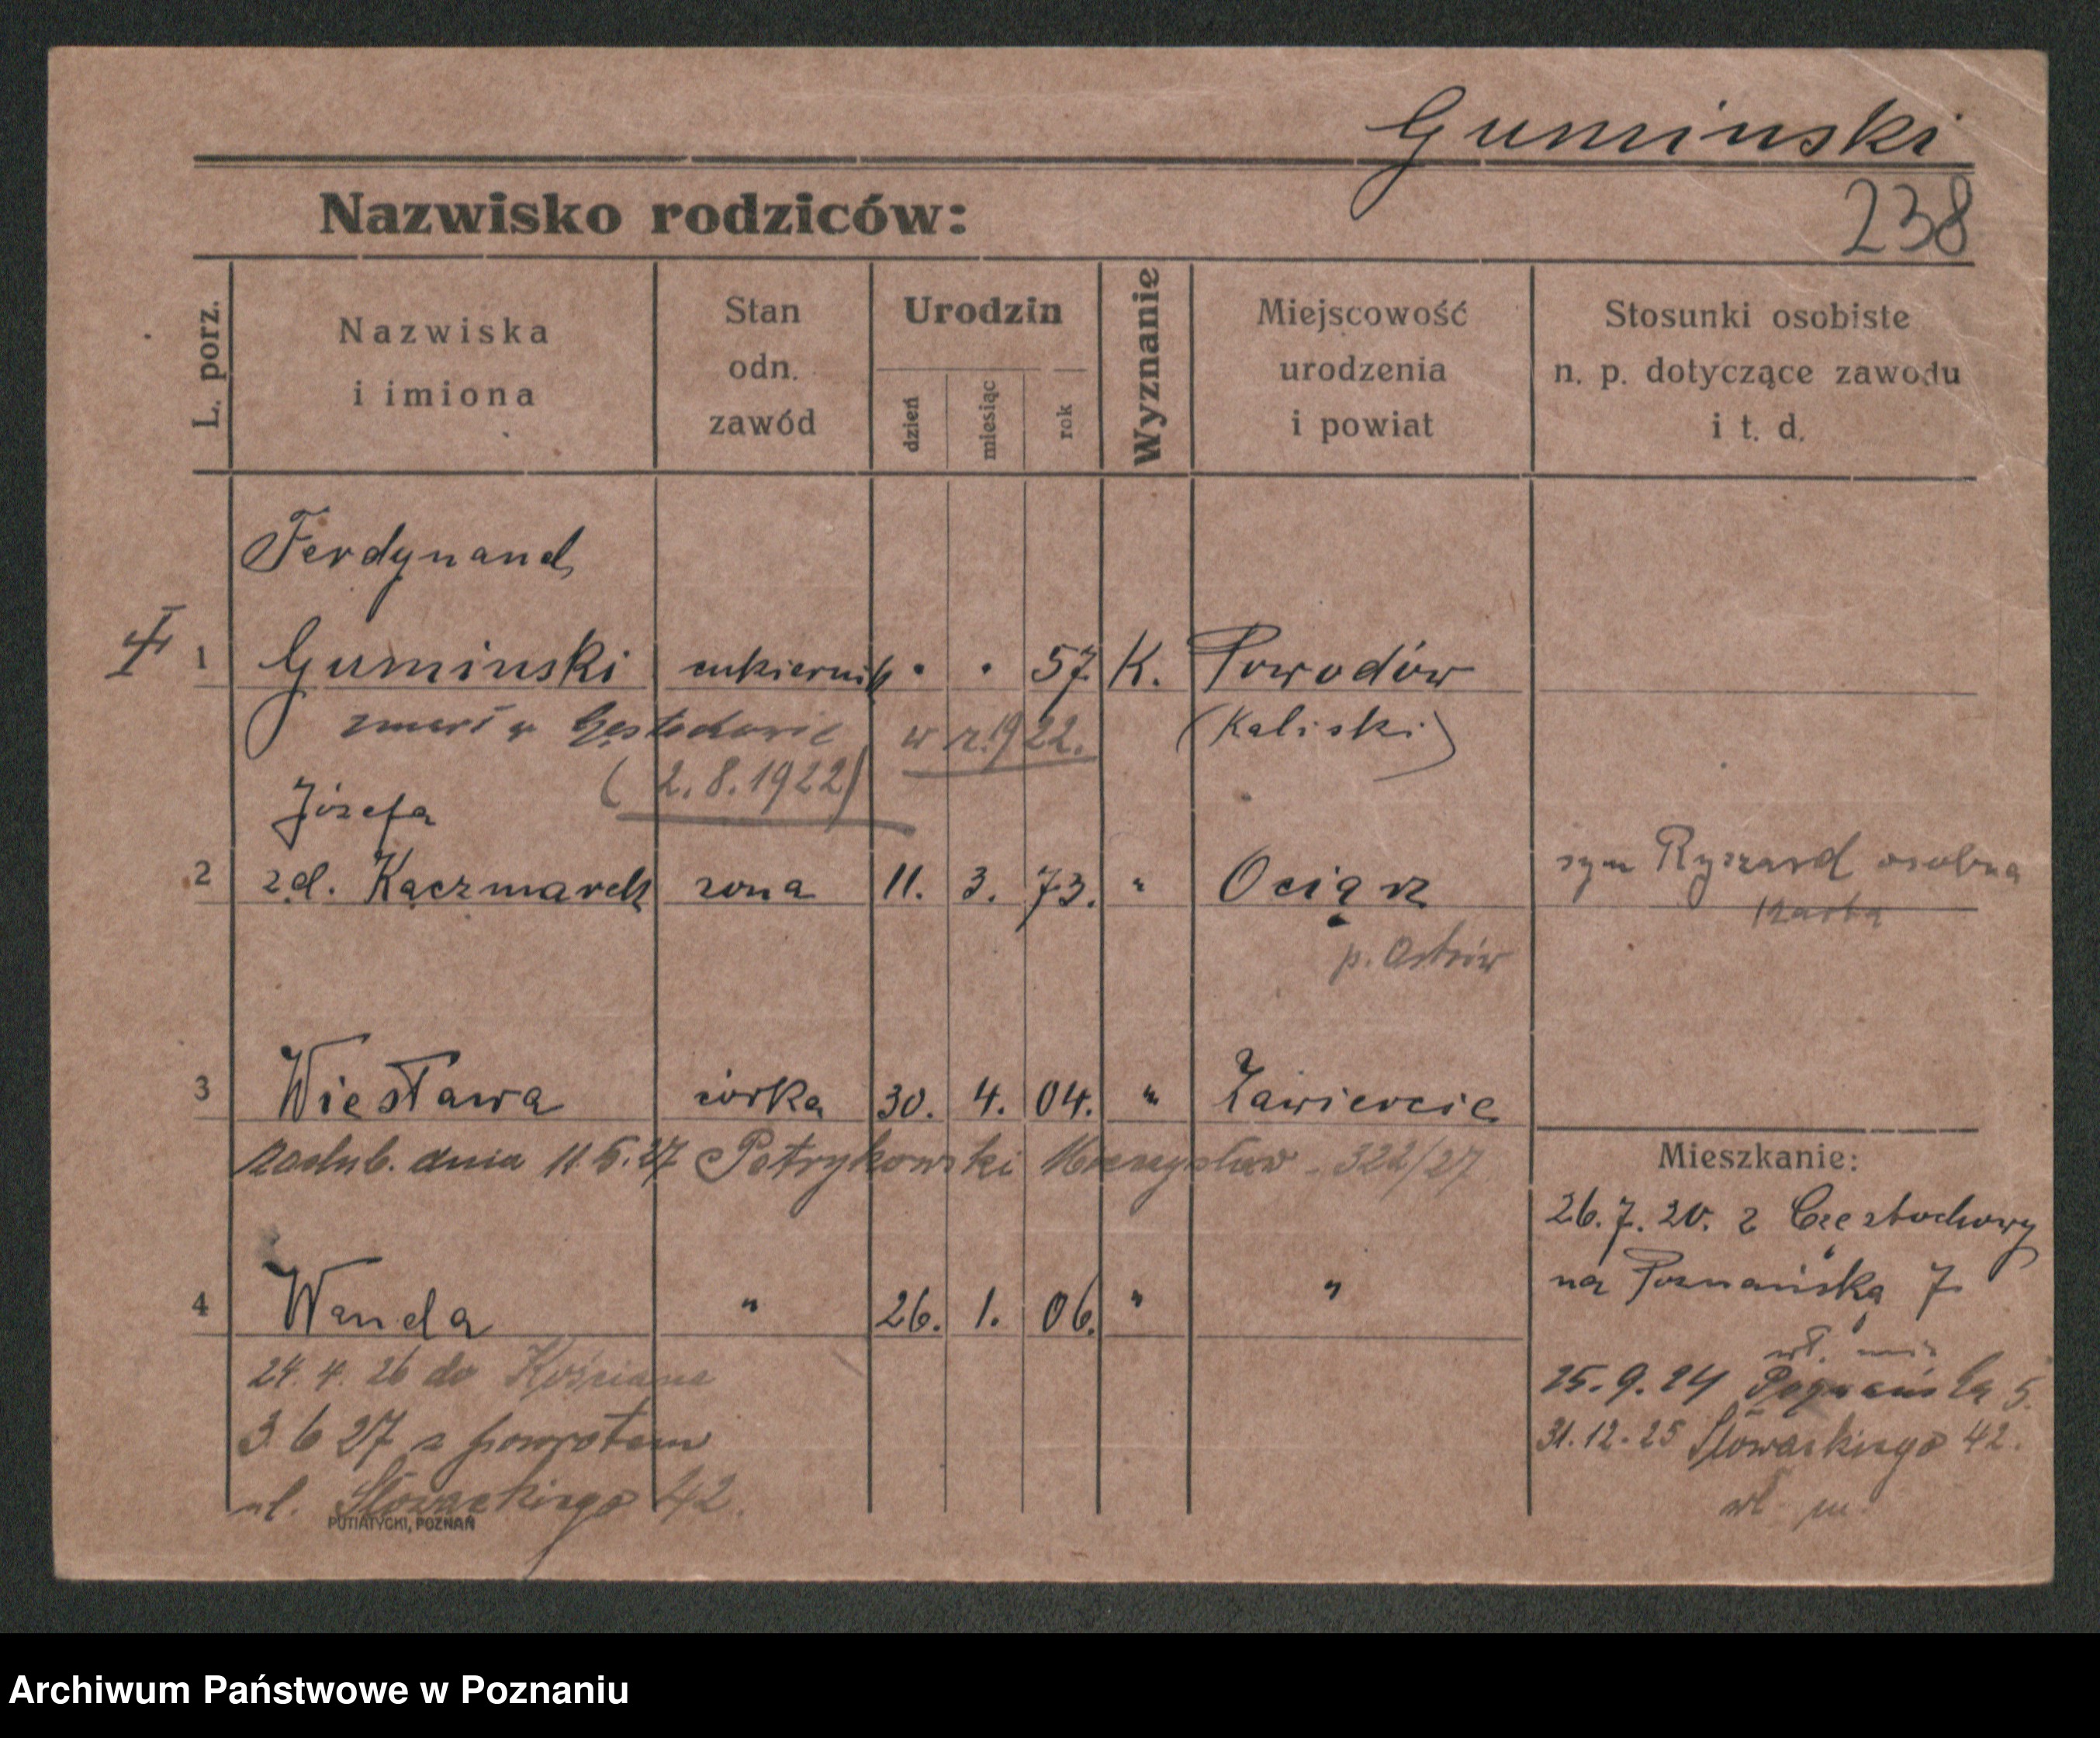 Guminski
Nazwisko rodziców:
238
L. porz.
Nazwiska
i imiona
Stan
odn.
zawód
Urodzin
dzień
miesiąc
rok
Wyznanie
Miejscowość
urodzenia
i powiat
Stosunki osobiste
n. p. dotyczące zawodu
i t. d.
Ferdynand
1 Guminski cukiernik · · 57 K. Powodów
zmarł w w r. 1922. (Kaliski)
(2.8.1922)
Józefa
2 zd. Kaczmarek żona 11. 3. 73. " Ociąż
syn Ryszard osobna
p. Ostrów
3 Wiesława córka 30. 4. 04. " Zawiercie
zaślub. dnia 11.5.27 Petrykowski Mieczysław - 322/27
4 Wanda " 26. 1. 06. " "
24. 4. 26 do Kościana
3 6 27 z powrotem
ul. Słowackiego 42.
Mieszkanie:
26. 7. 20. z Częstochowy
na Poznańską 7
wł.
25. 9. 24 Poznańska 5.
31. 12. 25 Słowackiego 42.
wł. m.
PUTIATYCKI, POZNAŃ
Archiwum Państwowe w Poznaniu